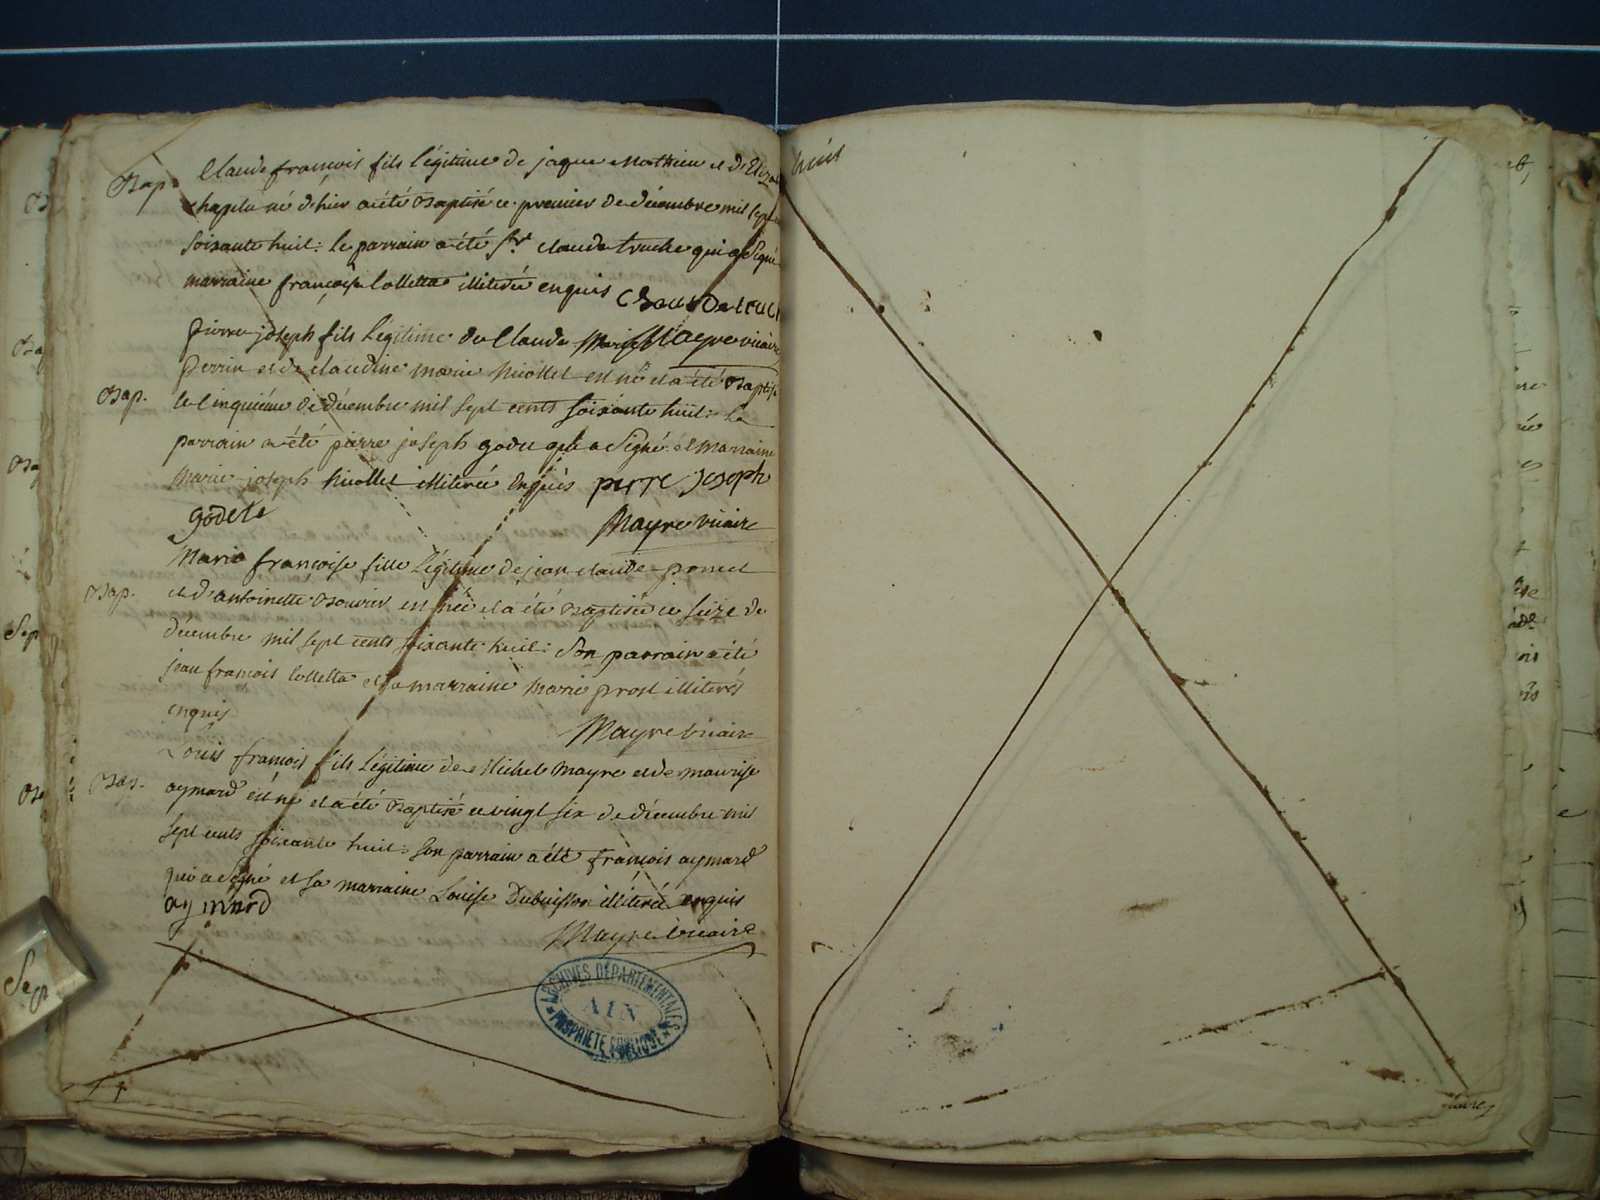 Bap. Claude françois fils légitime de jaque Mathieu et d'Eliza
chapelu né d'hier a été Baptisé ce premier de décembre mil sept
soixante huit: le parrain a été sr. claude truche qui a signé
marraine françoise Colletta illiterée enquis Claude truch
pierre joseph fils légitime de Claude Marie Mayre vicaire
perrin et de claudine marie Nicollet est né et a été Baptisé
Bap. le cinquiéme de décembre mil sept cents soixante huit: le
parrain a été pierre joseph godet qui a signé et marraine
Marie joseph Nicollet illiterée enquis pierre joseph
godete
Mayre vicaire
Marie françoise fille légitime de jean claude poncet
Bap. et d'antoinette Bouvier est née et a été Baptisée ce seize de
décembre mil sept cents soixante huit: Son parrain a été
jean françois Colletta et sa marraine Marie prost illiterés
enquis
Mayre vicaire
Louis françois fils légitime de Michel Mayre et de maurise
Bap. aymard est né et a été Baptisé ce vingt six de décembre mil
sept cents soixante huit: son parrain a été françois aymard
qui a signé et sa marraine Louise Dubuisson illiterée enquis
aymard
Mayre vicaire
ARCHIVES DÉPARTEMENTALES
AIN
PROPRIÉTÉ PUBLIQUE
huit
Sep
Sep